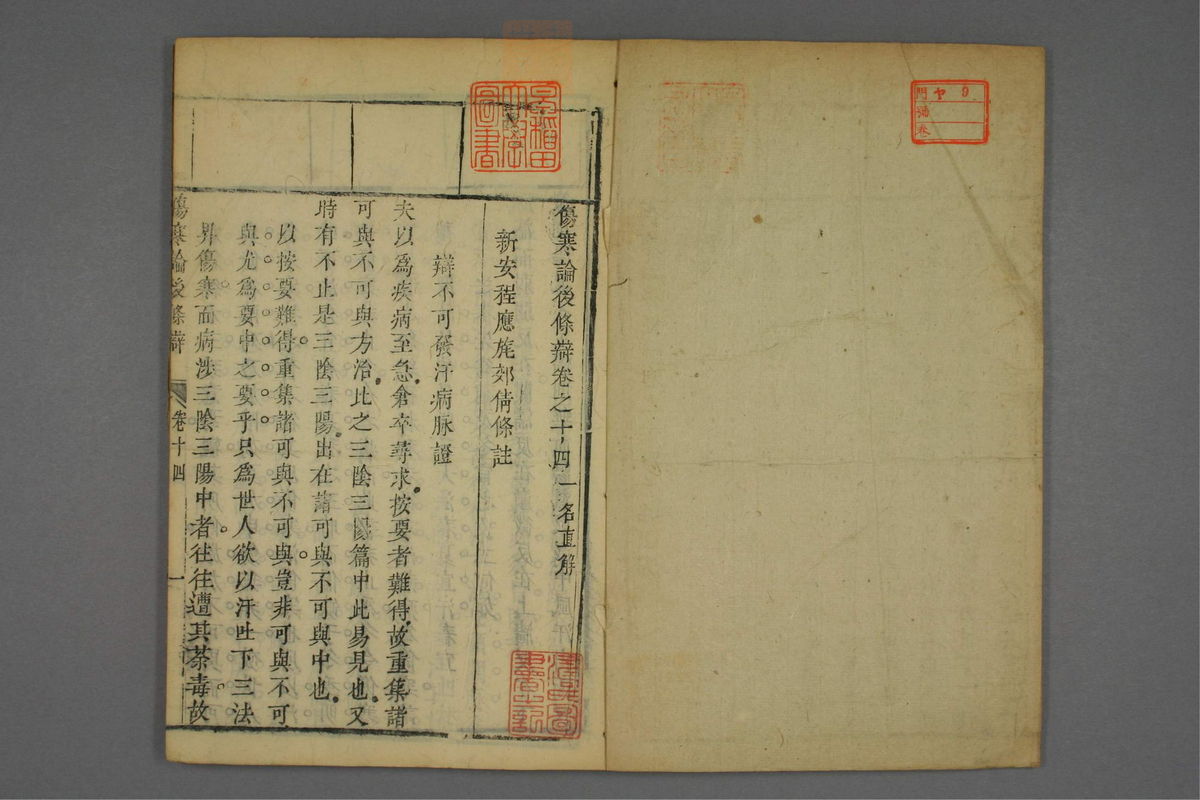 傷寒論後條辯卷之十四 一名直解
新安程應旄郊倩條註
辯不可發汗病脉證
夫以為疾病至急倉卒尋求按要者難得故重集諸
可與不可與方治比之三陰三陽篇中此易見也又
時有不止是三陰三陽出在諸可與不可與中也
以按要難得重集諸可與不可與豈非可與不可
與尤為要中之要乎只為世人欲以汗吐下三法
界傷寒而病涉三陰三陽中者往往遭其荼毒故
傷寒論後條辯 卷十四 一
早稻田大學圖書
門 ヤ9
號
卷